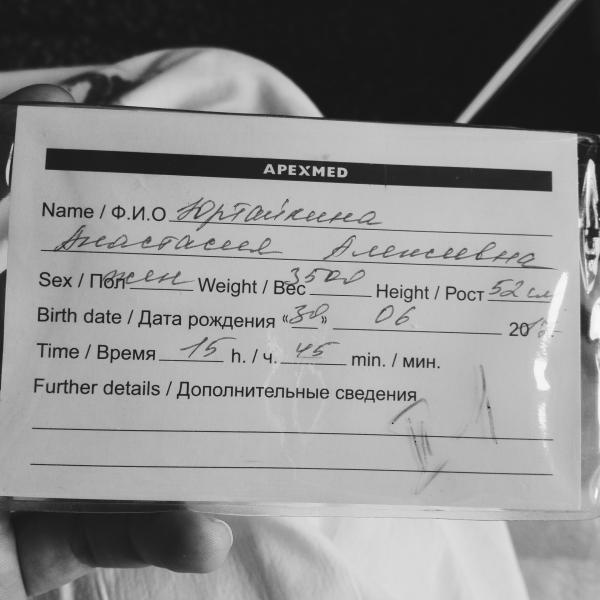 APEXMED
Name / Ф.И.О Юртайкина
Анастасия Алексеевна
Sex / Пол жен Weight / Вес 3500 Height / Рост 52 см
Birth date / Дата рождения «30» 06 20
Time / Время 15 h. / ч. 45 min. / мин.
Further details / Дополнительные сведения